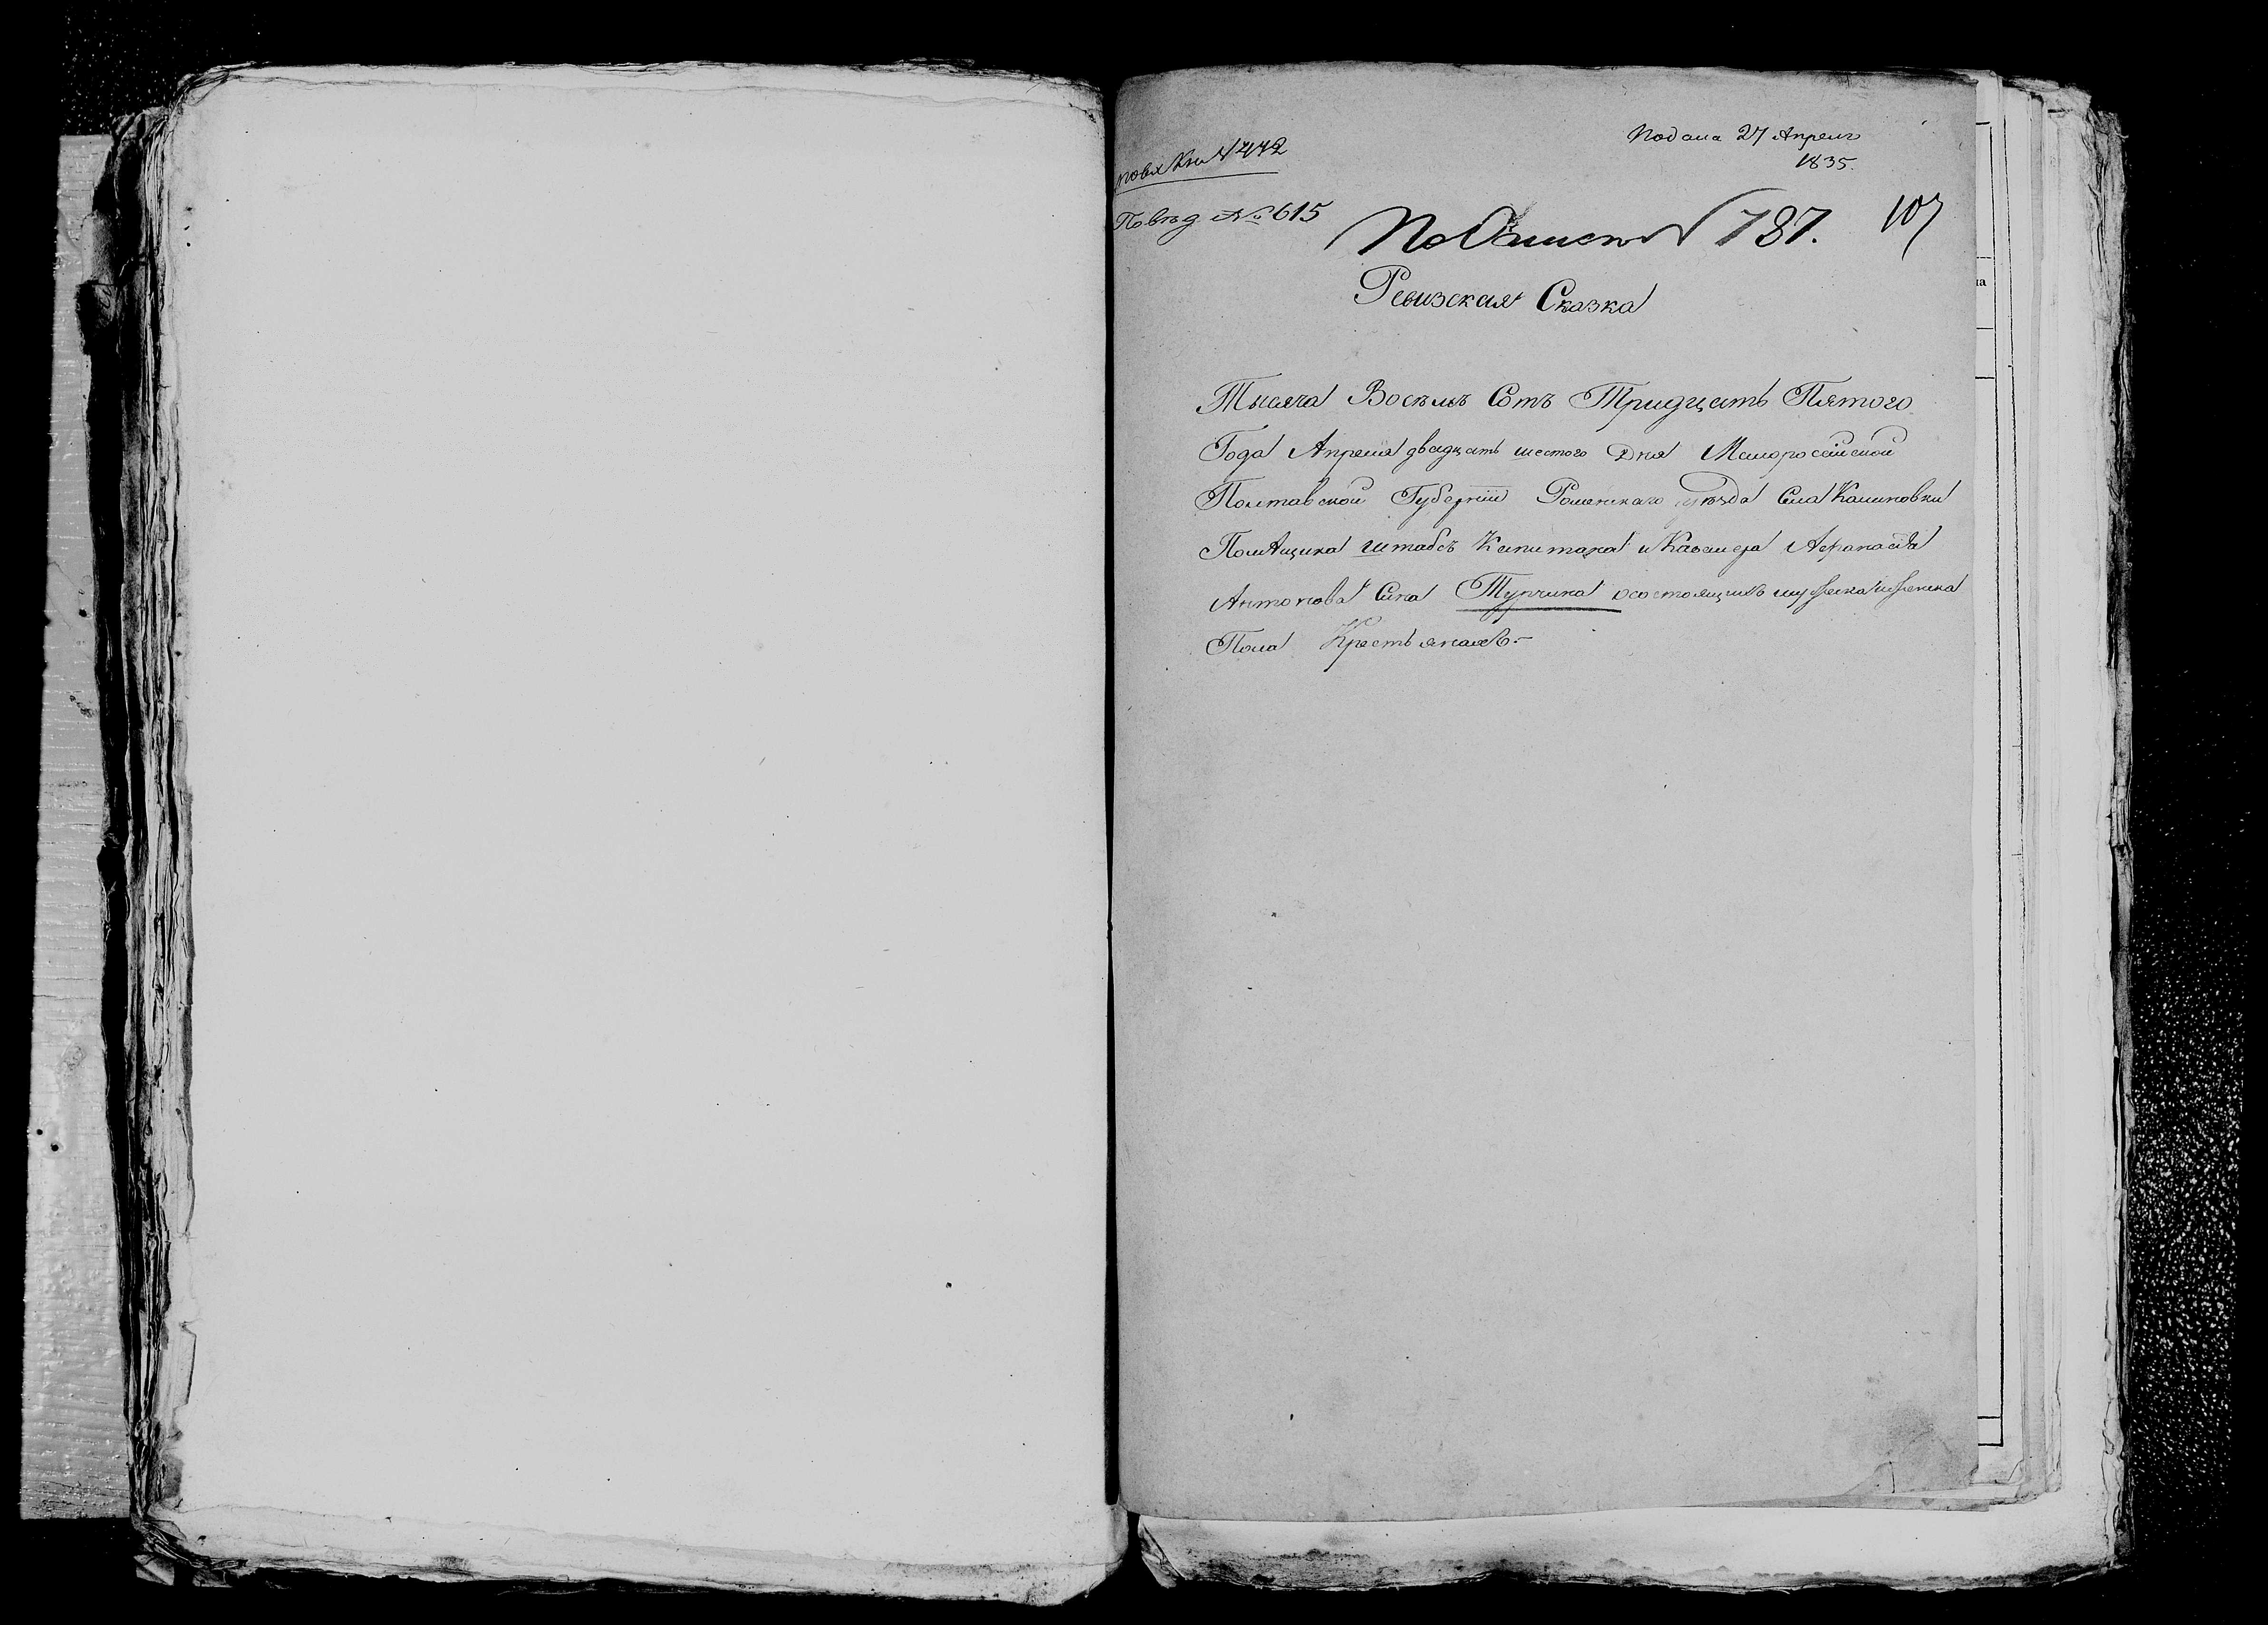 Подана 27 Апреля
1835.
№ 472
По вѣд. № 615
По Описи № 787.
107
Ревизская Сказка
Тысяча Восѣмъ Сотъ Тридцать Пятого
Года Апреля двадцать шестого Дня Малоросѣйской
Полтавской Губернии Роменскаго уѣзда Села Калиновки
Помѣщика штабсъ Капитана и Кавалера Афанасѣя
Антонова Сина Тупчина осостоящихъ мужеска иженска
Пола Крестьянахъ.
на